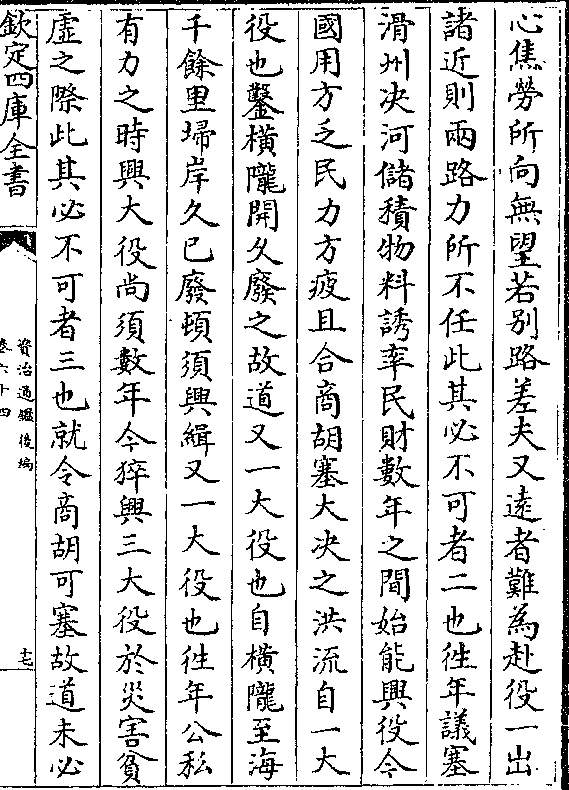 心焦勞所向無望若别路差夫又遠者難為赴役一出
諸近則兩路力所不任此其必不可者二也徃年議塞
滑州决河儲積物料誘率民財數年之間始能興役今
國用方乏民力方疲且合商胡塞大决之洪流自一大
役也鑿橫隴開久廢之故道又一大役也自橫隴至海
千餘里埽岸久已廢頓須興緝又一大役也徃年公私
有力之時興大役尚須數年今猝興三大役於災害貧
虛之際此其必不可者三也就令商胡可塞故道未必
欽定四庫全書
資治通鑑後編
卷六十四
十七